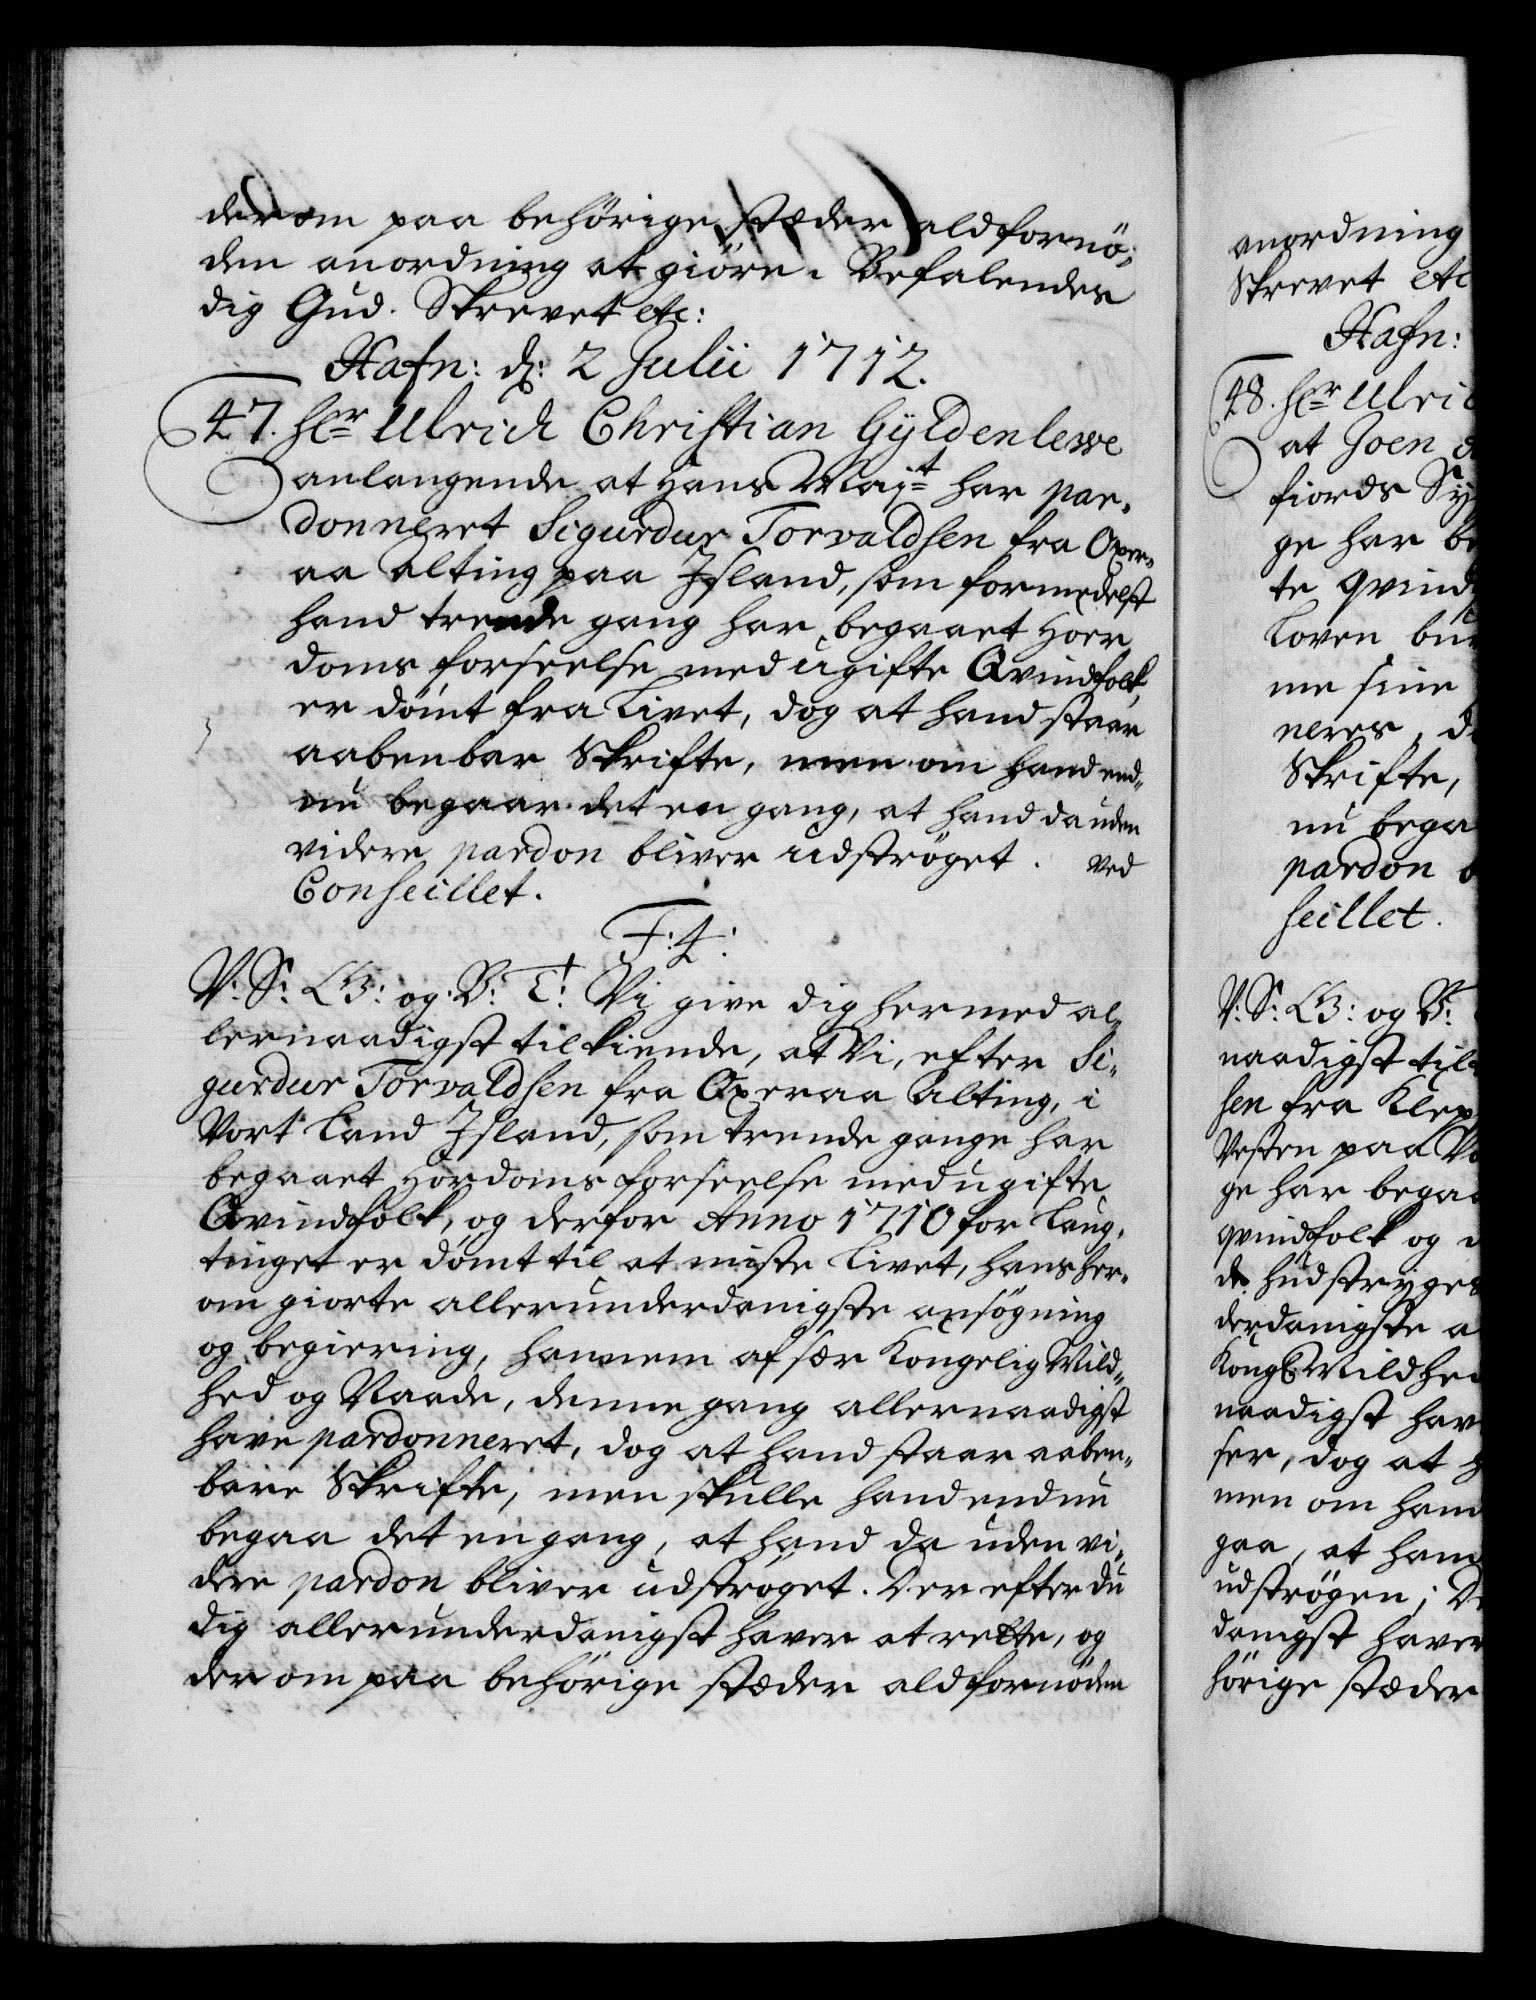 derom paa behörige stæder aldfornö-
den anordning at giöre. Befalendes
dig Gud. Skrevet etc:
Hafn: d: 2 Julii 1712.
47. Hr Ulrich Christian Gyldenlewe
anlangende at Hans Mayt har par-
donneret Sigurdur Torvaldsen fra Oxer-
aa Alting paa Island, som formedelst
hand trende gang har begaaet Hoer
doms forseelse med ugifte Qvindfolk
er dömt fra Livet, dog at hand staar
aabenbar Skrifte, men om hand end-
nu begaar det en gang, at hand da uden
videre pardon bliver udströget. ved
Conseillet.
F: 4:
V: S: G: og B: T: Vi give dig hermed al-
lernaadigst tilkiende, at Vi, efter Si-
gurdur Torvaldsen fra Oxeraa Alting, i
Vort Land Island, som trende gange har
begaaet Hordoms forseelse med ugifte
Qvindfolk, og derfor Anno 1710 for Laug-
tinget er dömt til at miste Livet, hans her-
om giorte allerunderdanigste ansögning
og begiering, hannem af sær Kongelig Mild-
hed og Naade, denne gang allernaadigst
have pardonneret, dog at hand staar aaben-
bare Skrifte, men skulle hand endnu
begaa det en gang, at hand da uden vi-
dere pardon bliver udströget. Der efter du
dig allerunderdanigst haver at rette, og
derom paa behörige stæder ald fornöden
anordning
Skrevet etc
Hafn:
48. Hr Ulric
at Joen
fiords Sy
ge har be
te qvind
Loven bu
me sine
neres, d
Skrifte,
nu bega
pardon b
seillet.
V: S: G: og B:
naadigst til
sen fra Klep
Vesten paa V
ge har bega
qvindfolk og
de hudstryges
derdanigste a
Kongl: Mildhed
naadigst hav
ser, dog at h
men om hand
gaa, at hand
udströgen; D
danigst haver
hörige stæder